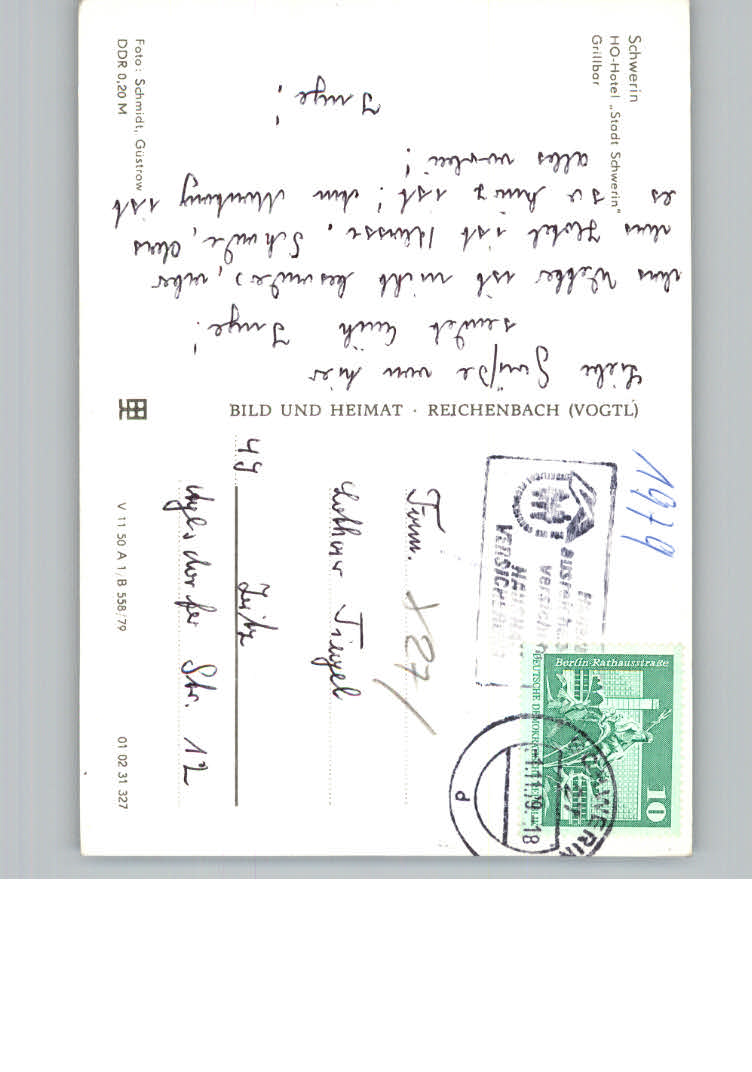 Schwerin
HO-Hotel „Stadt Schwerin"
Grillbar
Liebe Grüße von hier
sendet Euch Inge!
Das Wetter ist nicht besonders, aber
das Hotel ist Klasse. Schade, dass
es so kurz ist! Am Montag ist
alles vorbei!
Inge!
Foto: Schmidt, Güstrow
DDR 0,20 M
BILD UND HEIMAT · REICHENBACH (VOGTL)
1979
Berlin-Rathausstraße
DEUTSCHE DEMOKRATISCHE REPUBLIK
10
SCHWERIN
27
1.11.79.-18
d
VERSICHERUNG
Fam.
x 87/
Lothar Tiegel
49 Zeitz
Str. 12
V 11 50 A 1/B 558/79
01 02 31 327